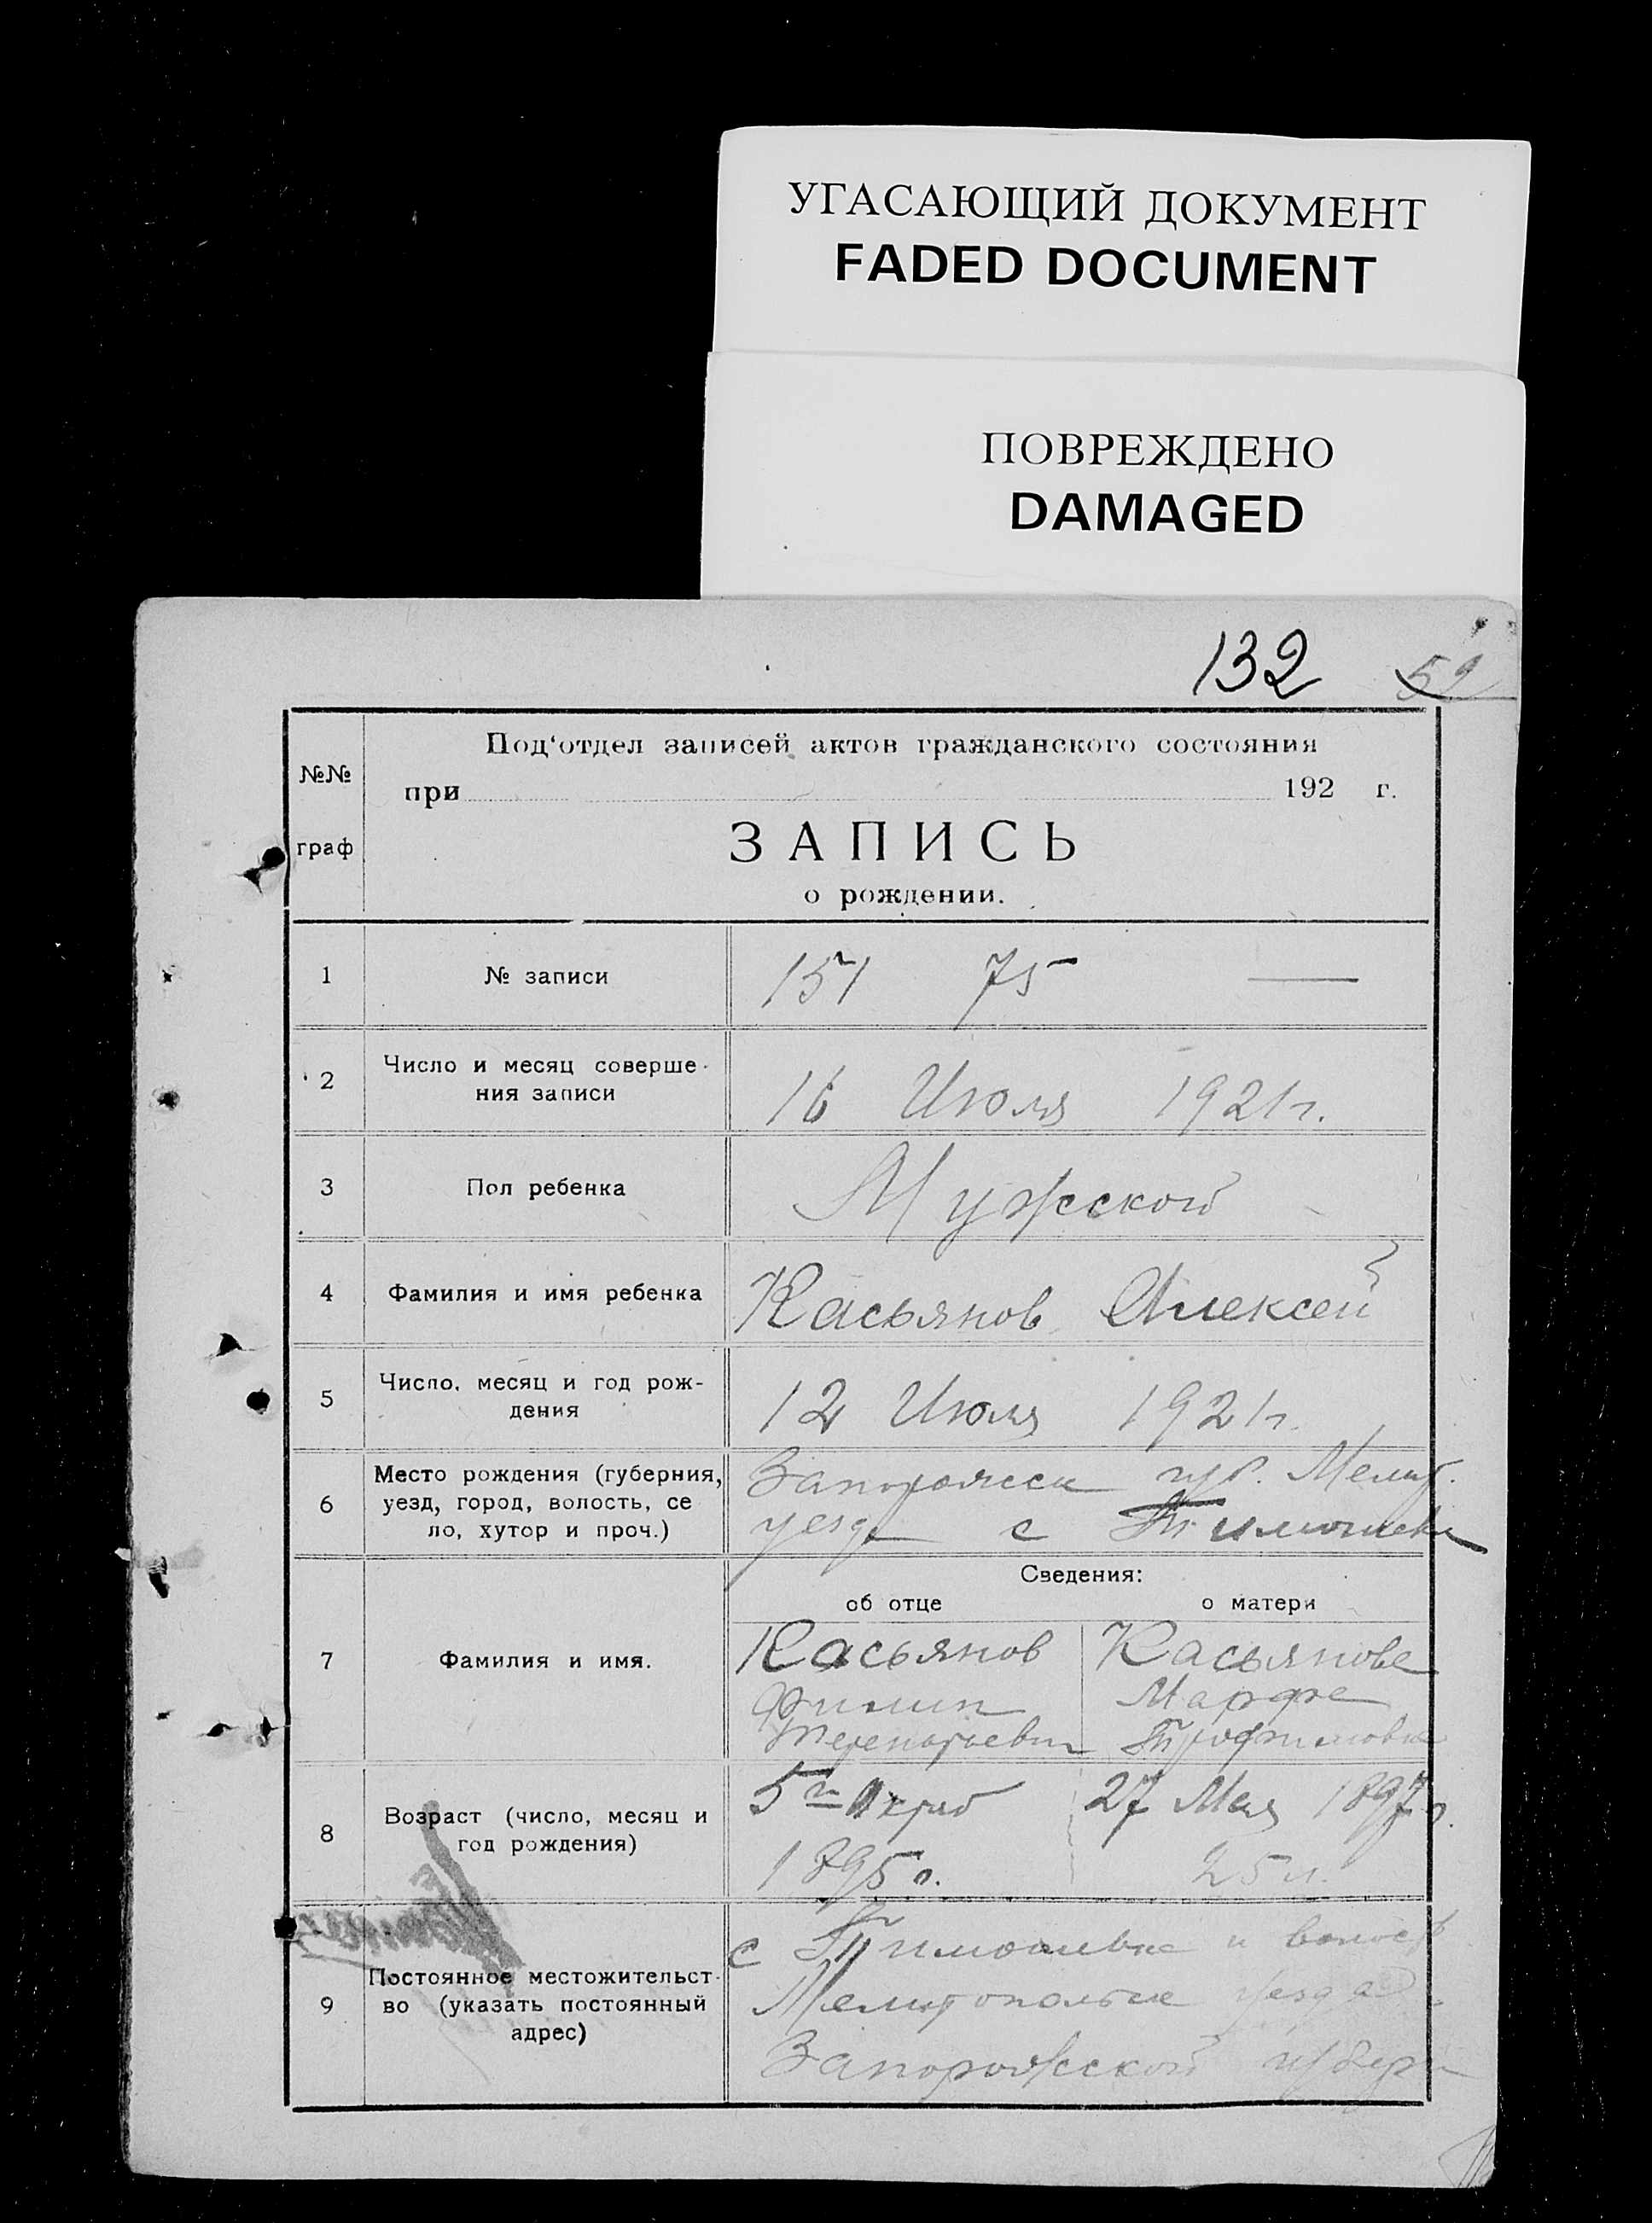 УГАСАЮЩИЙ ДОКУМЕНТ
FADED DOCUMENT
ПОВРЕЖДЕНО
DAMAGED
132 52
№№ граф
Под‘отдел записей актов гражданского состояния
при 192 г.
ЗАПИСЬ
о рождении.
1 № записи 151 75 —
2 Число и месяц соверше-
ния записи 16 Июля 1921 г.
3 Пол ребенка Мужской
4 Фамилия и имя ребенка Касьянов Алексей
5 Число, месяц и год рож-
дения 12 Июля 1921 г.
6 Место рождения (губерния,
уезд, город, волость, се
ло, хутор и проч.)
Запорожск губ. Мелит.
уезда с
Сведения:
об отце о матери
7 Фамилия и имя.
Касьянов Касьянова
Филип Марфа
Терентьевич Трофимовна
8 Возраст (число, месяц и
год рождения)
5го Октяб 27 Мая 1897 г.
1895 г. 25 л.
9 Постоянное местожительст-
во (указать постоянный
адрес)
с Тимошевка и волост
Мелитопольск уезда
Запорожской губерн